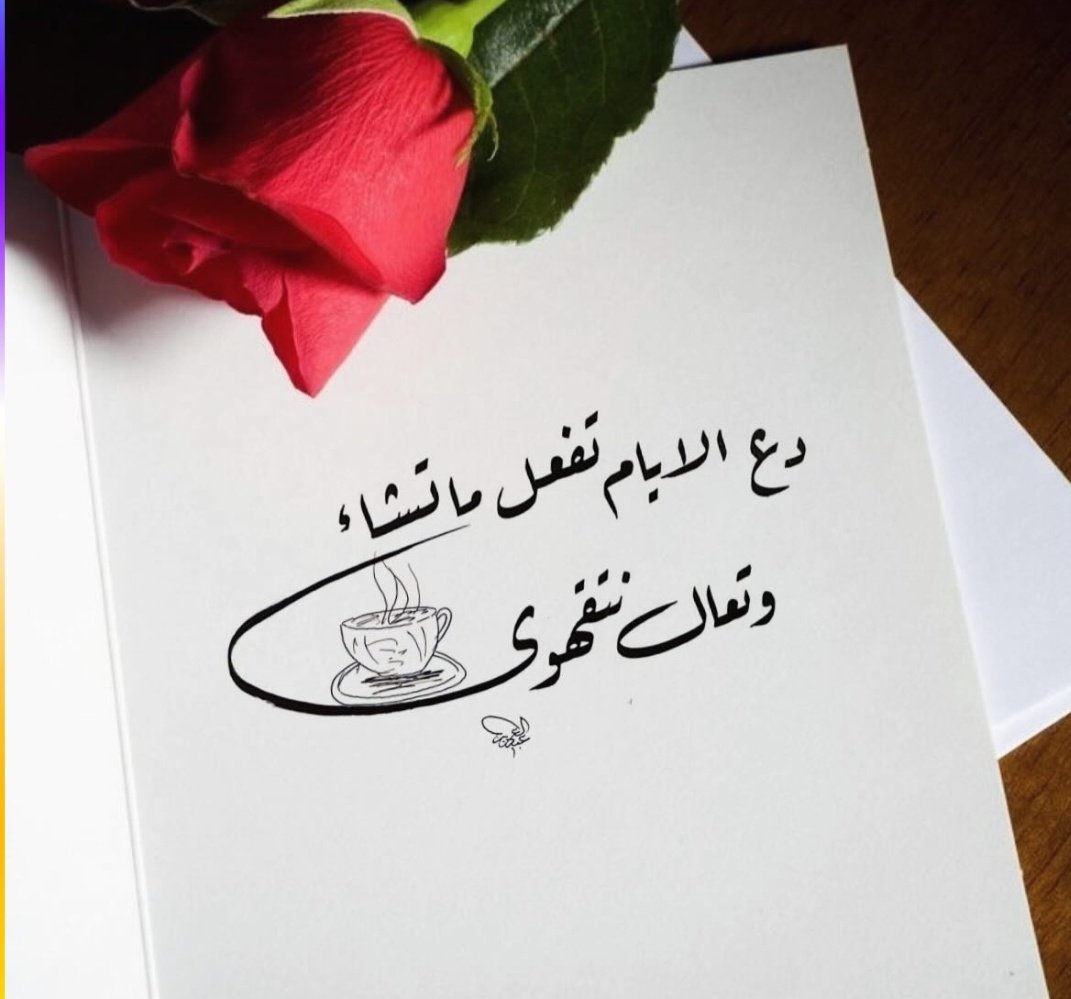 دع الايام تفعل ماتشاء
وتعال نتقهوى